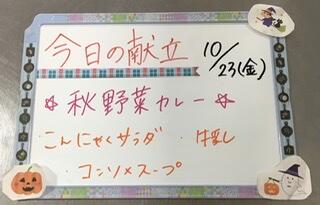 今日の献立 10/23(金)
☆秋野菜カレー☆
・こんにゃくサラダ ・牛乳
・コンソメスープ